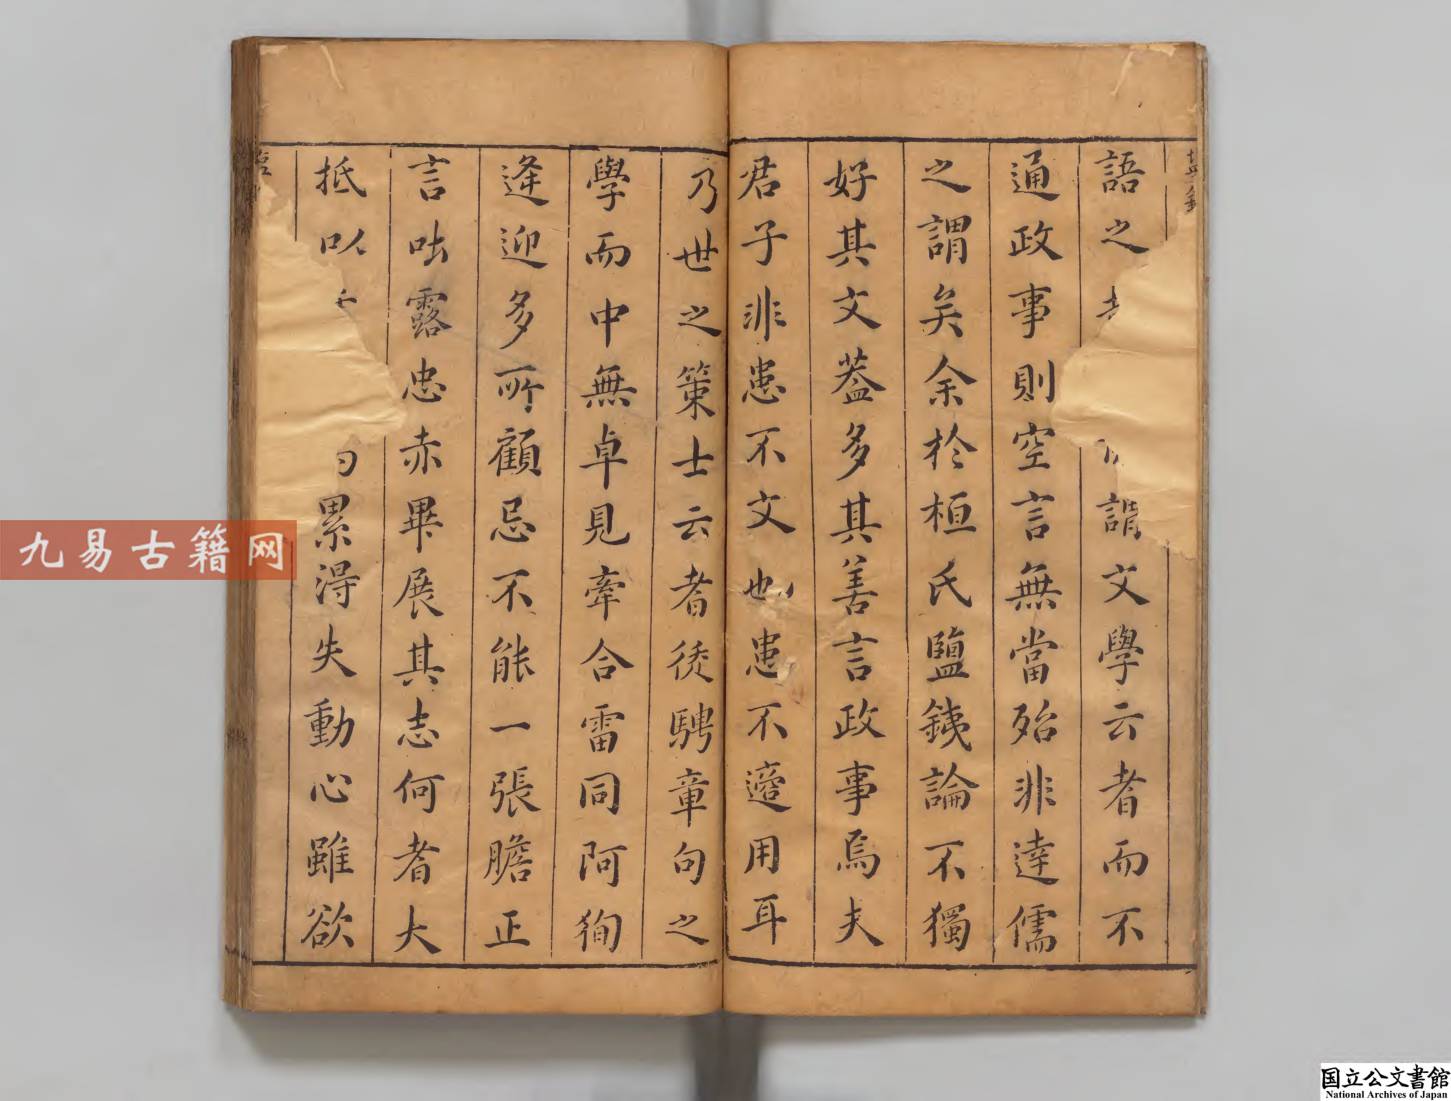 語之 謂文學云者而不
通政事則空言無當殆非達儒
之謂矣余於桓氏鹽銕論不獨
好其文葢多其善言政事焉夫
君子非患不文也患不適用耳
乃世之策士云者徒騁章句之
學而中無卓見牽合雷同阿徇
逢迎多所顧忌不能一張膽正
言吐露忠赤畢展其志何者大
抵以 累得失動心雖欲
九易古籍网
国立公文書館
National Archives of Japan